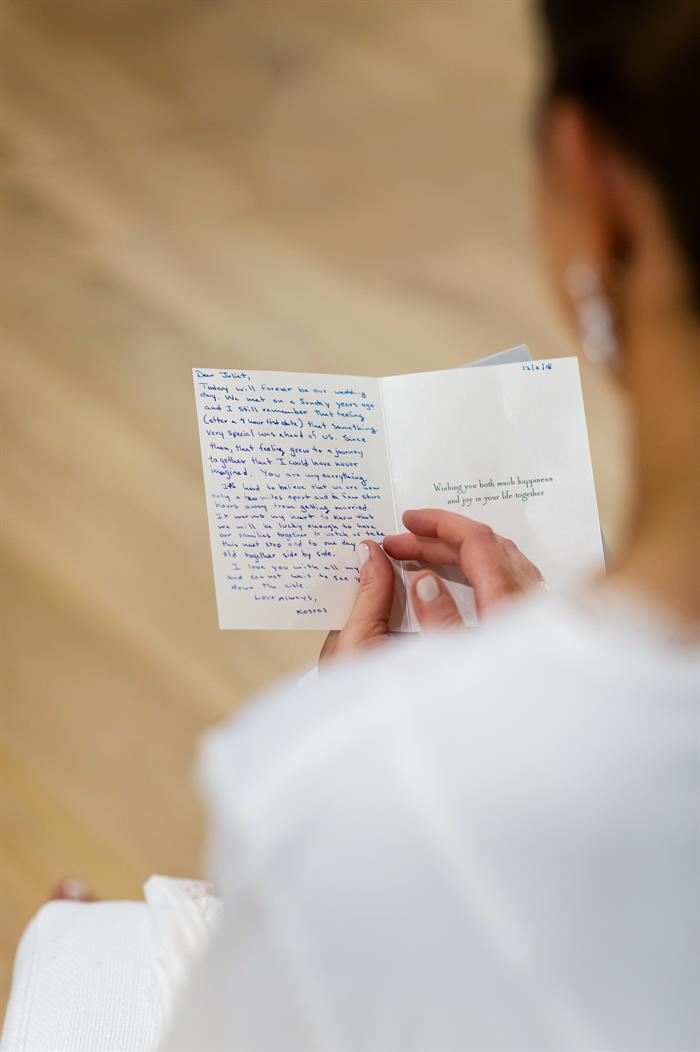 Dear Juliet,
Today will forever be our wedding
day. We met on a Sunday years ago
and I still remember that feeling
(after a 9 hour first date) that something
very special was ahead of us. Since
then, that feeling grew to a journey
together that I could have never
imagined. You are my everything.
It's hard to believe that we are now
only a few miles apart and a few short
hours away from getting married.
It warms my heart to know that
we will be lucky enough to have
our families together to watch us take
this next step and to one day
old together side by side.
I love you with all my
and can not wait to see
down the aisle.
Love Always,
Kostas
12/2/18
Wishing you both much happiness
and joy in your life together